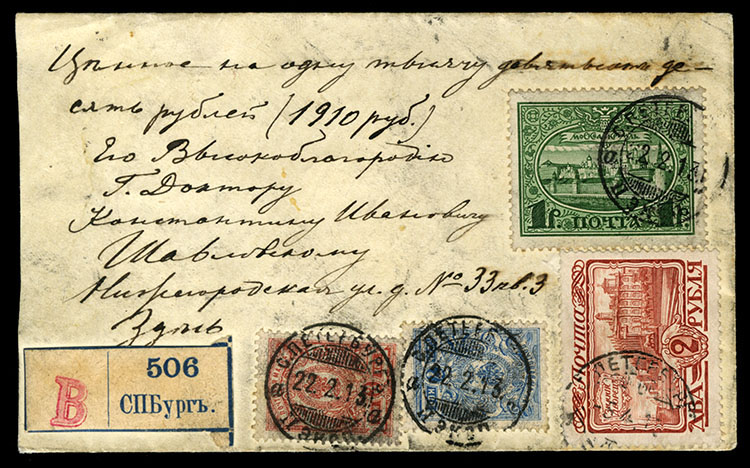 Цѣнное на одну тысячу девятьсотъ де-
сять рублей (1910 руб.)
Его Высокоблагородію
Г. Доктору
Константину Ивановичу
Шавловскому
Нижегородская ул. д. № 33 кв. 3
Здѣсь
1 р. ПОЧТА 1 р.
почта
ДВА 2 РУБЛЯ
С.ПЕТЕРБУРГЪ
22.2.13
22.2.13
22.2.13
В
506
СПБургъ.